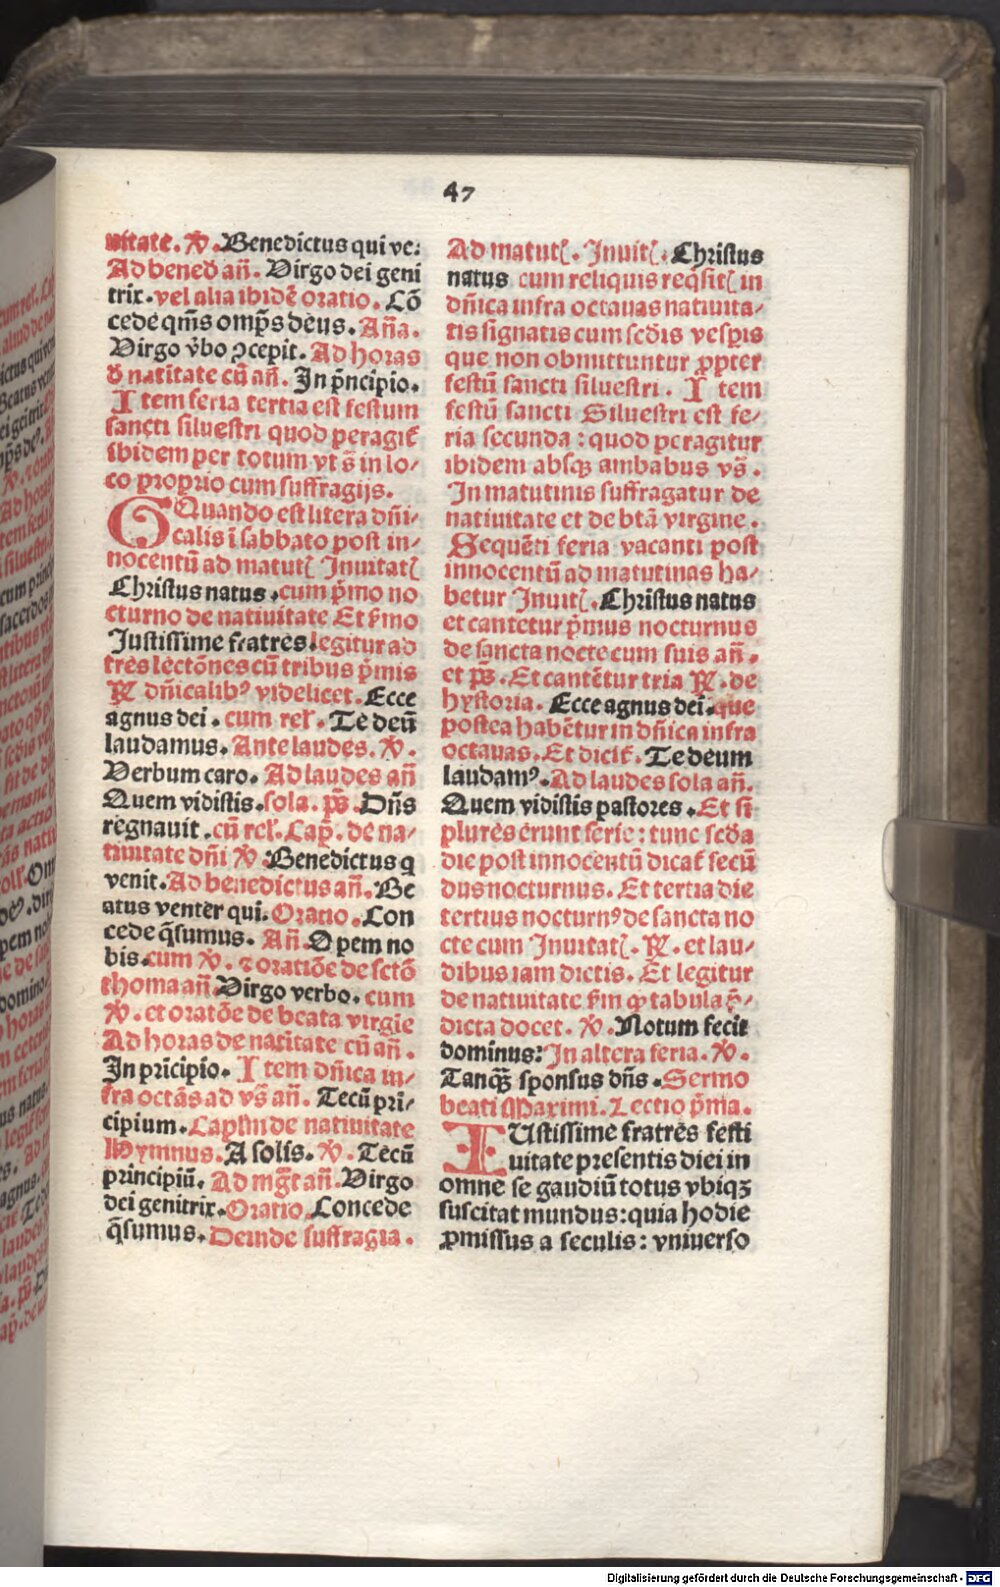 47
uitate. ℣. Benedictus qui ve:
Ad bened̄ añ. Virgo dei geni
trix. vel alia ibidē oratio. Cō
cede qm̄s omp̄s deus. Aña.
Virgo v̄bo ꝯcepit. Ad horas
d̄ natītate cū añ. In p̄ncipio.
Item feria tertia est festum
sancti siluestri quod peragit̄
ibidem per totum vt s̄ in lo/
co proprio cum suffragijs.
Quando est litera dñi/
calis ī sabbato post in/
nocentū ad matutꝭ Inuitatꝭ
Christus natus. cum p̄mo no
cturno de natiuitate Et s̄mo
Iustissime fratres. legitur ad
tres lectōnes cū tribus p̄mis
℟ dñicalibꝰ videlicet. Ecce
agnus dei. cum rel̄. Te deū
laudamus. Ante laudes. ℣.
Verbum caro. Ad laudes añ
Quem vidistis. sola. ps̄. Dñs
regnauit. cū rel̄. Cap̄. de na/
tiuitate dñi ℣. Benedictus q
venit. Ad benedictus añ. Be
atus venter qui. Oratio. Con
cede q̄sumus. Añ. Opem no
bis. cum ℣. ⁊ oratiōe de sctō
thoma añ. Virgo verbo. cum
℣. et oratōe de beata virgīe
Ad horas de natītate cū añ.
In prīcipio. Item dñica in/
fra octās ad vs̄ añ. Tecū pri/
cipium. Caplm de natiuitate
Hymnus. A solis. ℣. Tecū
principiū. Ad mg̅t añ. Virgo
dei genitrix. Oratio. Concede
q̄sumus. Deinde suffragia.
Ad matutꝭ. Inuitꝭ. Christus
natus cum reliquis reqſitꝭ in
dñica infra octauas natiuita/
tis signatis cum scd̄is vesꝑis
que non obmittuntur ꝓpter
festū sancti siluestri. Item
festū sancti Siluestri est fe/
ria secunda: quod peragitur
ibidem absqꝫ ambabus vs̄.
In matutinis suffragatur de
natiuitate et de btā virgine.
Sequēti feria vacanti post
innocentū ad matutinas ha/
betur Inuitꝭ. Christus natus
et cantetur p̄mus nocturnus
de sancta nocte cum suis añ.
et ps̄. Et cantētur tria ℟. de
hystoria. Ecce agnus dei. que
postea habētur in dñica infra
octauas. Et dicit̄. Te deum
laudamꝰ. Ad laudes sola añ.
Quem vidistis pastores. Et si
plures erunt ferie: tunc scd̄a
die post innocentū dicat̄ secū
dus nocturnus. Et tertia die
tertius nocturnꝰ de sancta no
cte cum Inuitatꝭ. ℟. et lau/
dibus iam dictis. Et legitur
de natiuitate s̄m ꝙ tabula p̄/
dicta docet. ℣. Notum fecit
dominus: In altera feria. ℣.
Tanqꝫ sponsus dñs. Sermo
beati Maximi. Lectio p̄ma.
IUstissime fratres festi
uitate presentis diei in
omne se gaudiū totus vbiqꝫ
suscitat mundus: quia hodie
ꝓmissus a seculis: vniuerso
Digitalisierung gefördert durch die Deutsche Forschungsgemeinschaft - DFG